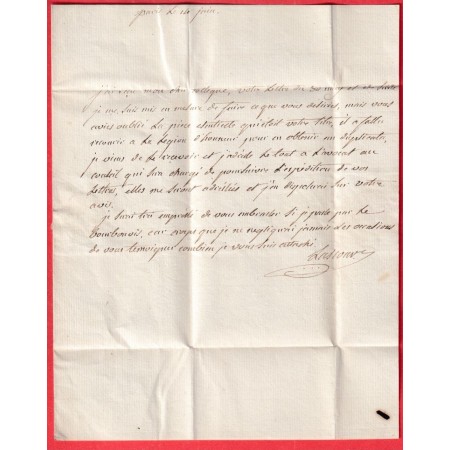 le 10 juin.
j'ai reçu mon cher collegue, votre lettre du 30 may et
je me suis mis en mesure de faire ce que vous desirez, mais vous
aviez oublié la piece essentielle qui etoit votre titre, il a fallu
recourir a la legion d'honneur pour en obtenir un duplicata,
je viens de le recevoir et j'adresse le tout a l'avocat au
conseil qui sera chargé de poursuivre l'expedition de vos
lettres, elles me seront adressées et j'en disposerai sur votre
avis.
je serai bien empressé de vous embrasser si je passe par le
bourbonnois, car croyez que je ne negligerai jamais les occasions
de vous temoigner combien je vous suis attaché